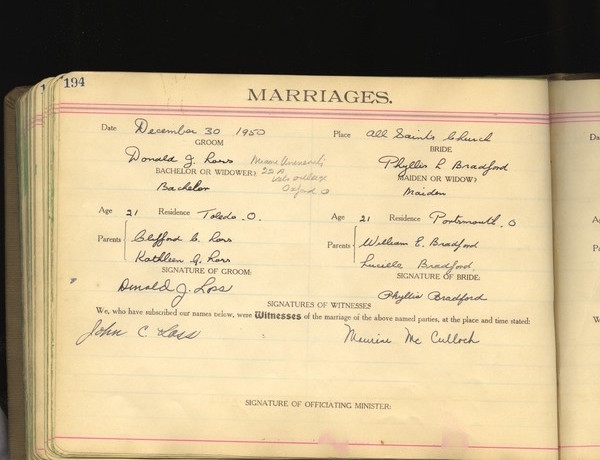 194
MARRIAGES.
Date December 30 1950 Place All Saints Church
GROOM BRIDE
Donald J. Loss Miami University Phyllis L Bradford
BACHELOR OR WIDOWER? MAIDEN OR WIDOW?
Bachelor Oxford O Maiden
Age 21 Residence Toledo. O. Age 21 Residence Portsmouth, O
Parents Clifford C. Loss Parents William E. Bradford
Kathleen G. Loss Lucielle Bradford
SIGNATURE OF GROOM: SIGNATURE OF BRIDE:
Donald J. Loss Phyllis Bradford
SIGNATURES OF WITNESSES
We, who have subscribed our names below, were Witnesses of the marriage of the above named parties, at the place and time stated:
John C. Loss Maurine Mc Culloch
SIGNATURE OF OFFICIATING MINISTER: